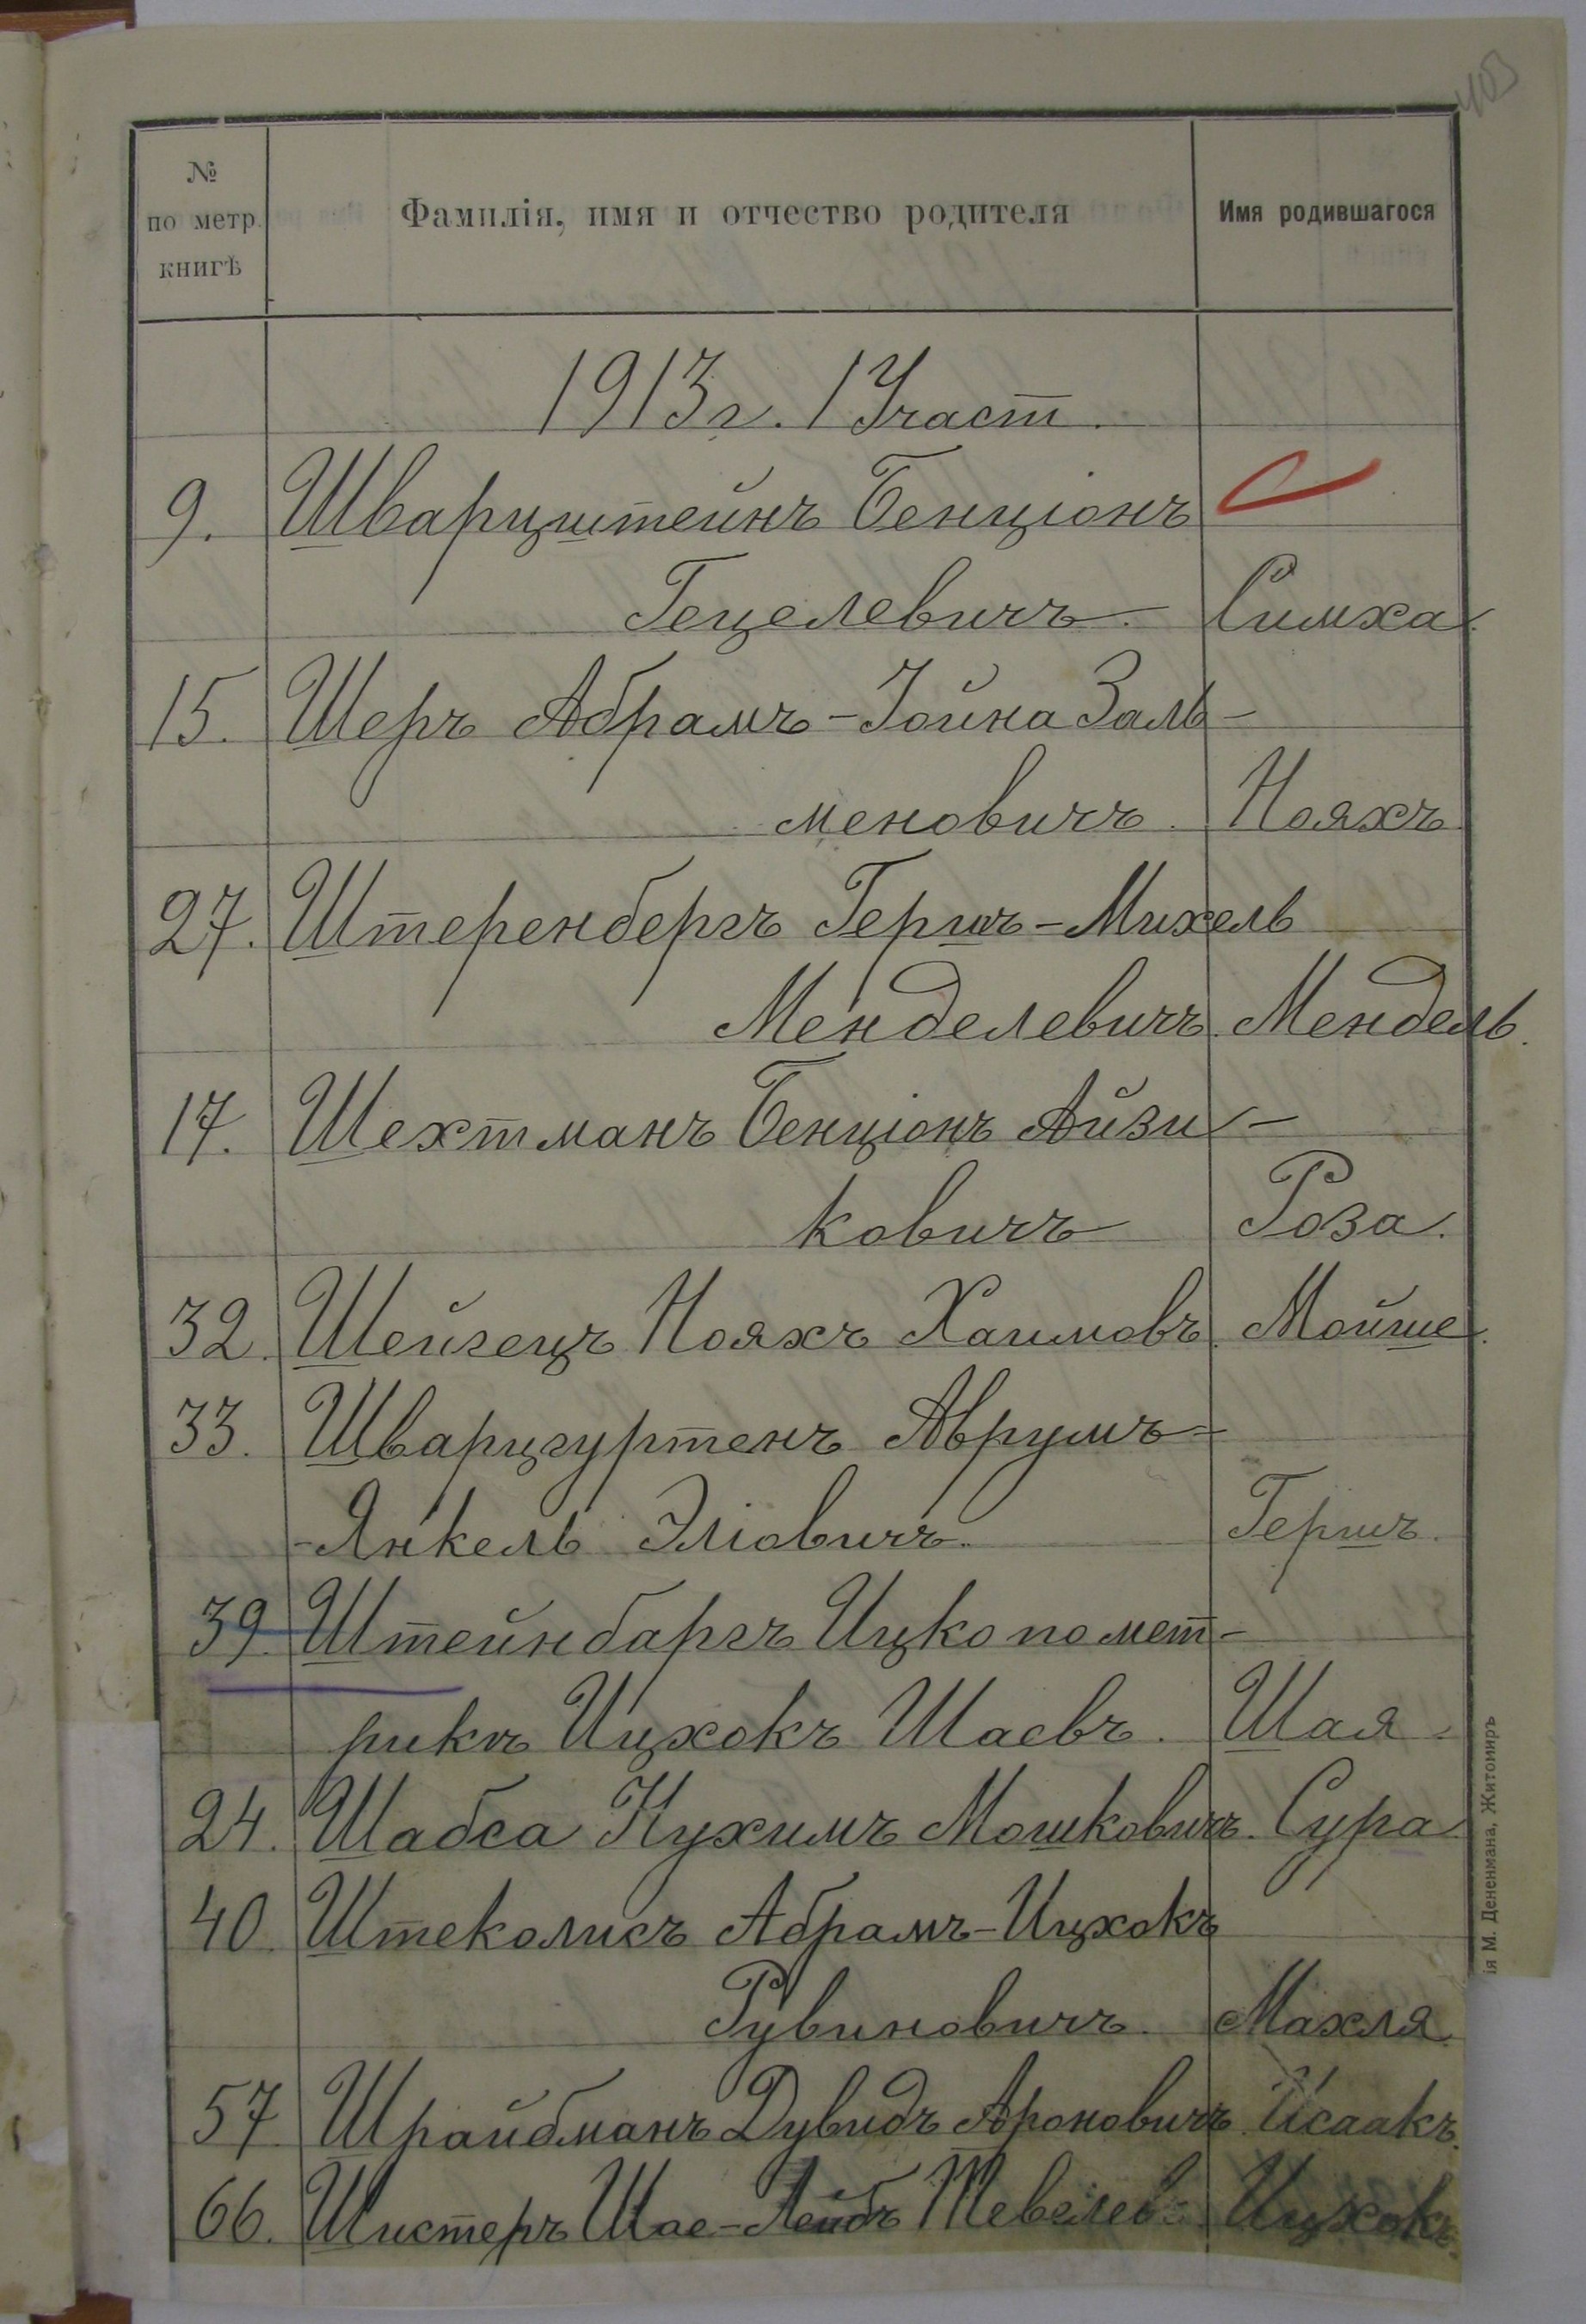 403
№ по метр. книгѣ
Фамилія, имя и отчество родителя
Имя родившагося
1913 г. 1 Участ.
9. Шварцштейнъ Бенціонъ
Гецелевичъ. Симха.
15. Шеръ Абрамъ-Іойна Заль-
меновичъ. Нояхъ
27. Штеренбергъ Гершъ-Михель
Менделевичъ. Мендель.
17. Шехтманъ Бенціонъ Айзи-
ковичъ Роза.
32. Шейгецъ Нояхъ Хаимовъ. Мойше.
33. Шварцгуртенъ Аврумъ-
-Янкель Эліовичъ. Гершъ.
39. Штейнбаргъ Ицко по мет-
рикѣ Ицхокъ Шаевъ. Шая.
24. Шабса Нухимъ Мошковичъ. Сура.
40. Штеколисъ Абрамъ-Ицхокъ
Рувиновичъ. Махля
57 Шрайбманъ Дувидъ Ароновичъ Исаакъ.
66. Шистеръ Шае-Лейбъ Тевелев. Ицхокъ.
ія М. Дененмана, Житомиръ